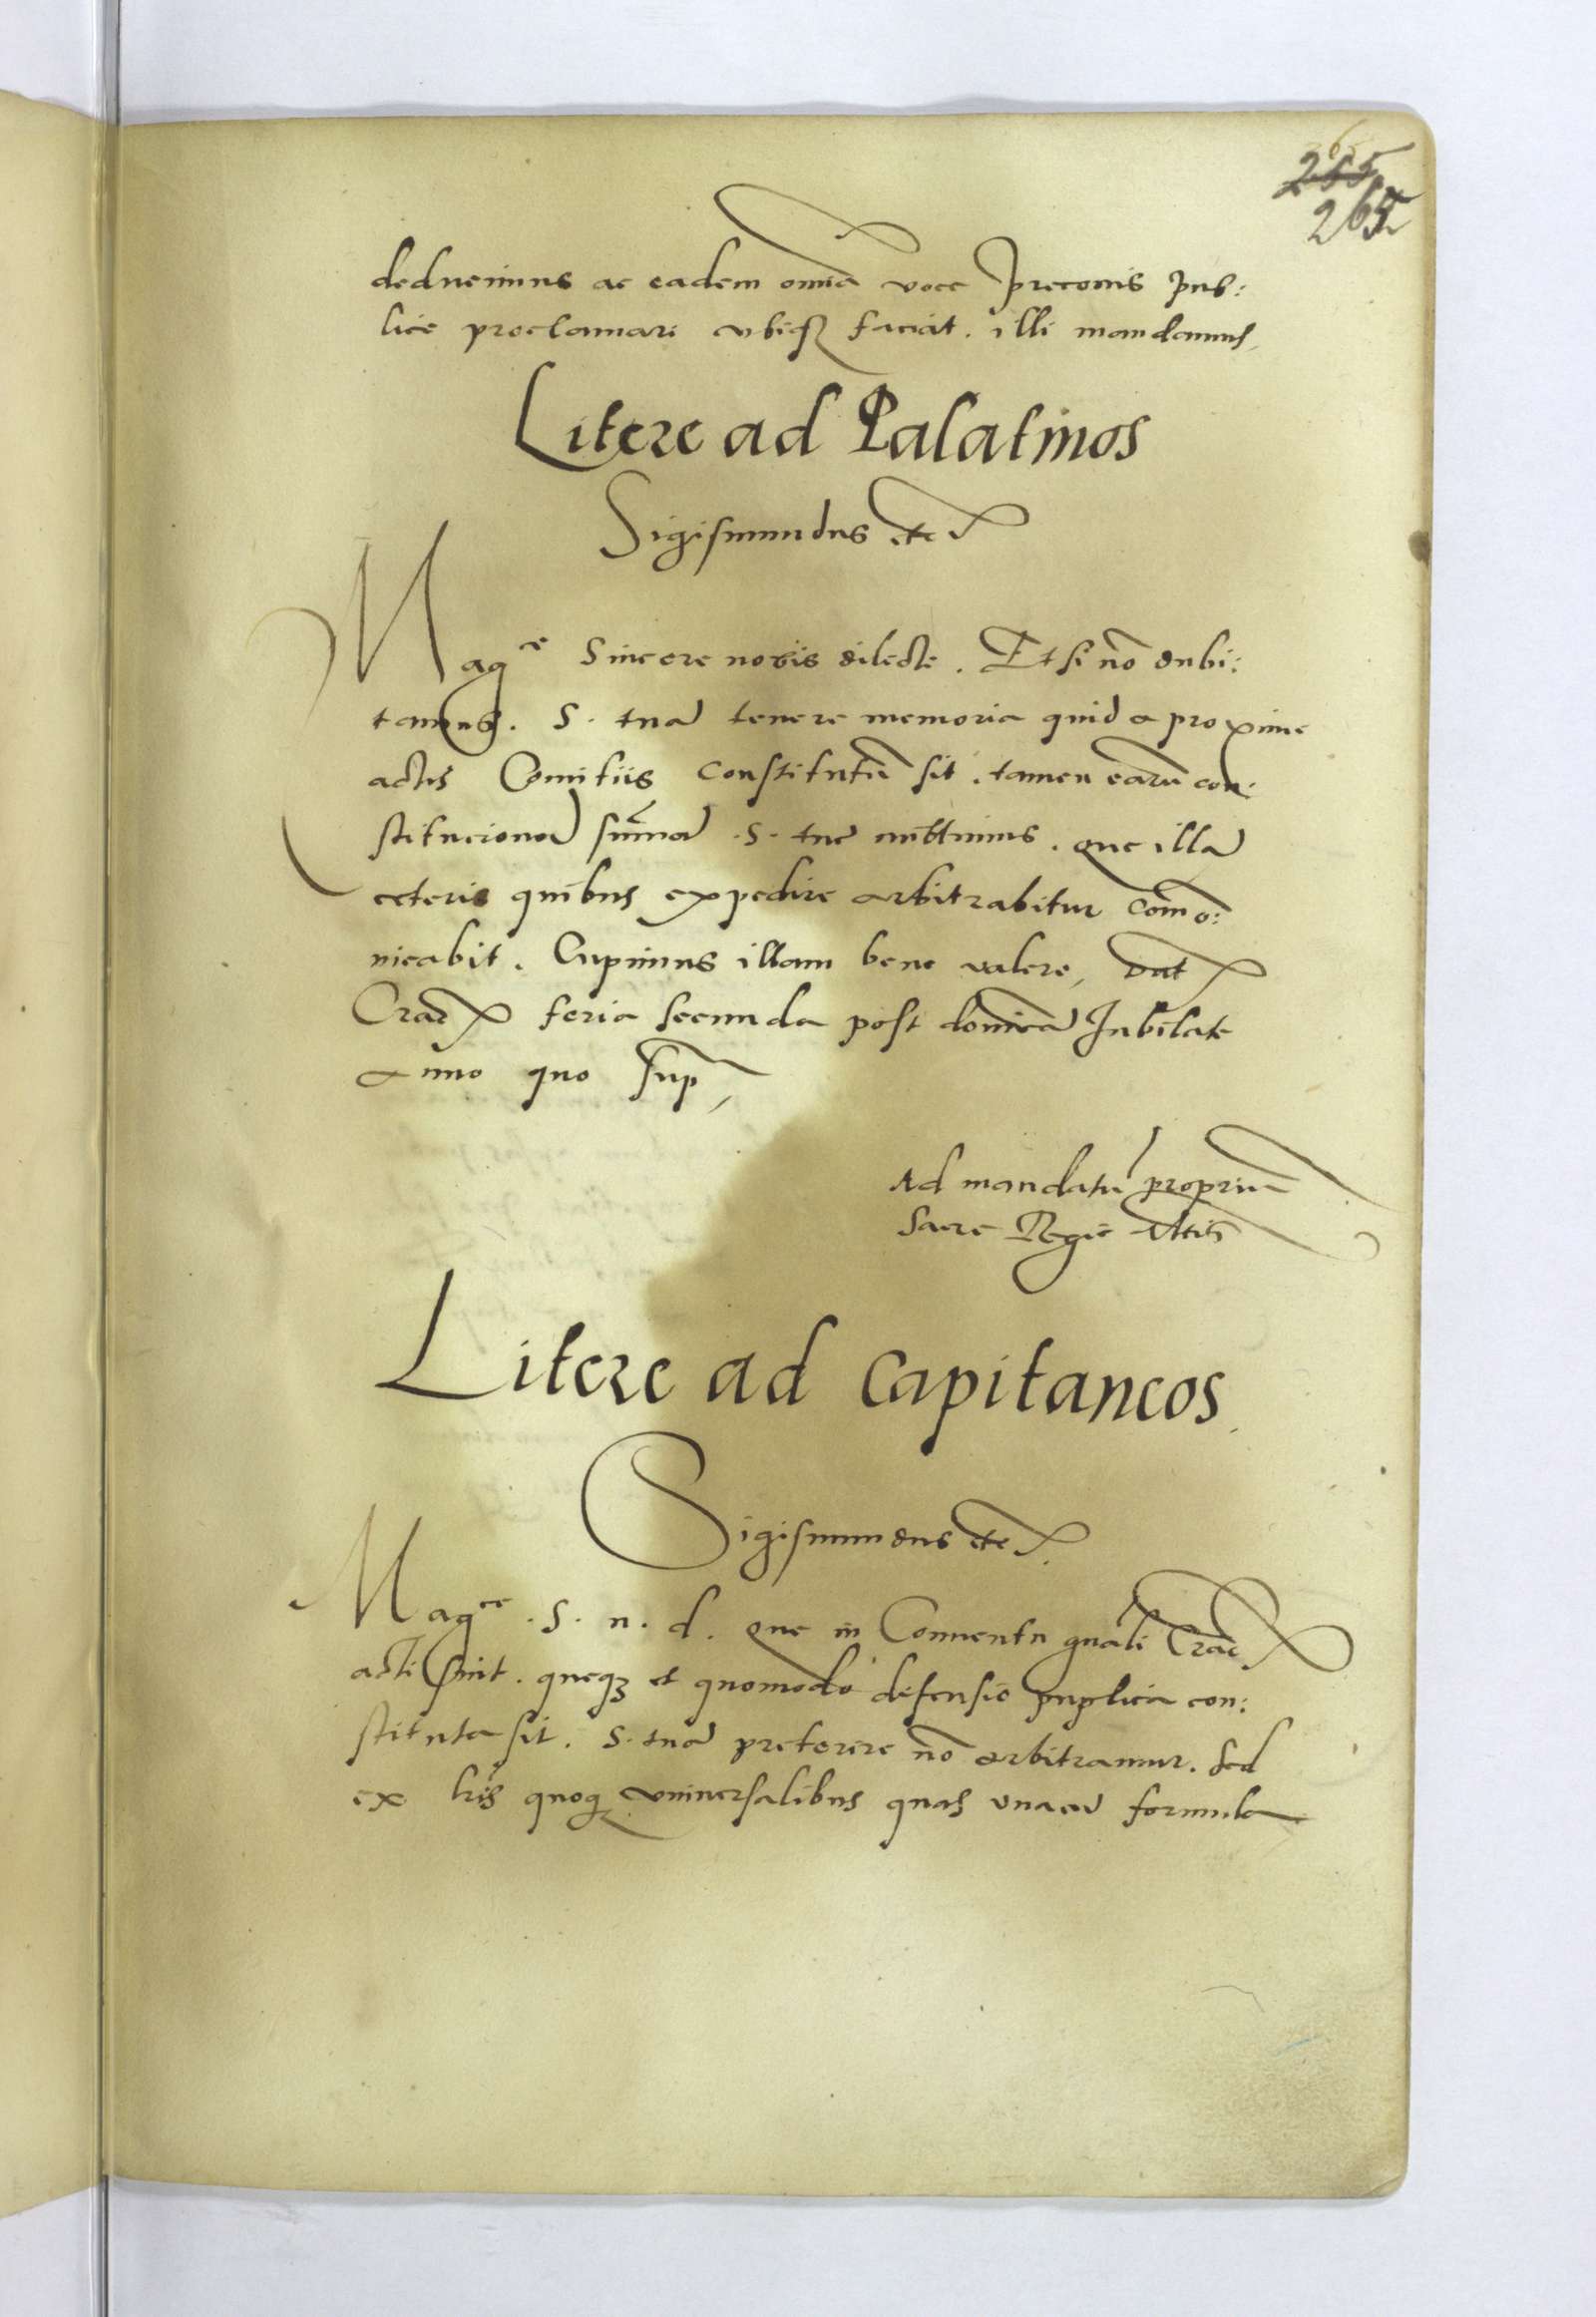 255
265
deducimus ac eadem omnia voce preconis pub:
lice proclamari ubiqȝ faciat. illi mandamus,
Litere ad Palatinos
Sigismundus etc
Magce Sincere nobis dilecte. Etsi nō dubi:
tamus. S. tuā tenere memoria quid a proxime
actis Comitiis constitutū sit. tamen earū con:
stitucionā sūmā .S. tue mittimus. que illā
ceteris quibus expedire arbitrabitur cōmo:
nicabit. Cupimus illam bene valere, Dat
Crac feria secunda post domicā Jubilate
anno quo sup,
Ad mandatū propriū
Sacre Regie Mtis
Litere ad Capitaneos.
Sigismundus etc.
Magce .S. n. d. que in Conventu gnali Crac
acti sint. queqȝ et quomodo defensio puplica con:
stituta sit. S. tuā preterire nō arbitramur. sed
ex lris quoqȝ universalibus quas una cū formula